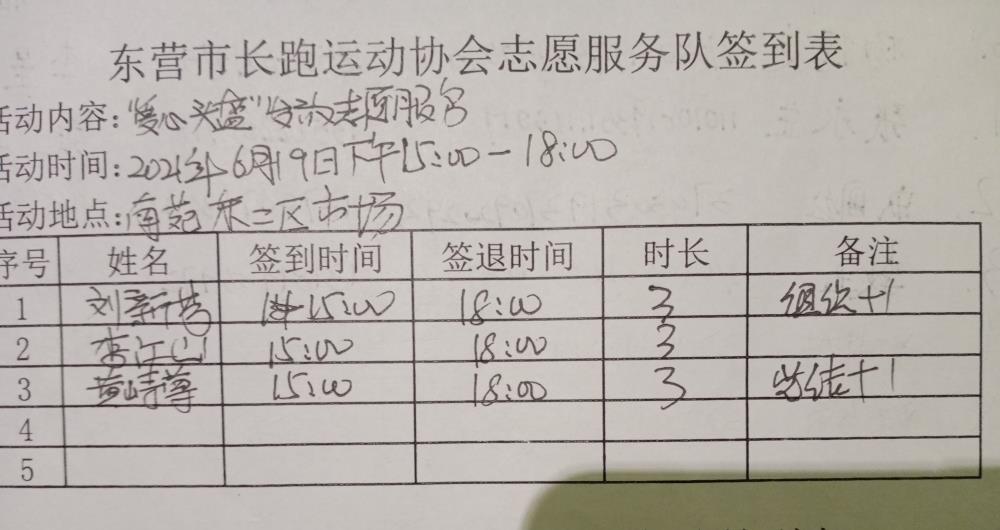 东营市长跑运动协会志愿服务队签到表
活动内容:"爱心头盔"发放志愿服务
活动时间:2021年6月19日下午15:00-18:00
活动地点:南苑东二区市场
序号 姓名 签到时间 签退时间 时长 备注
1 刘新 15:00 18:00 3 组织+1
2 李江山 15:00 18:00 3
3 黄 15:00 18:00 3 总结+1
4
5